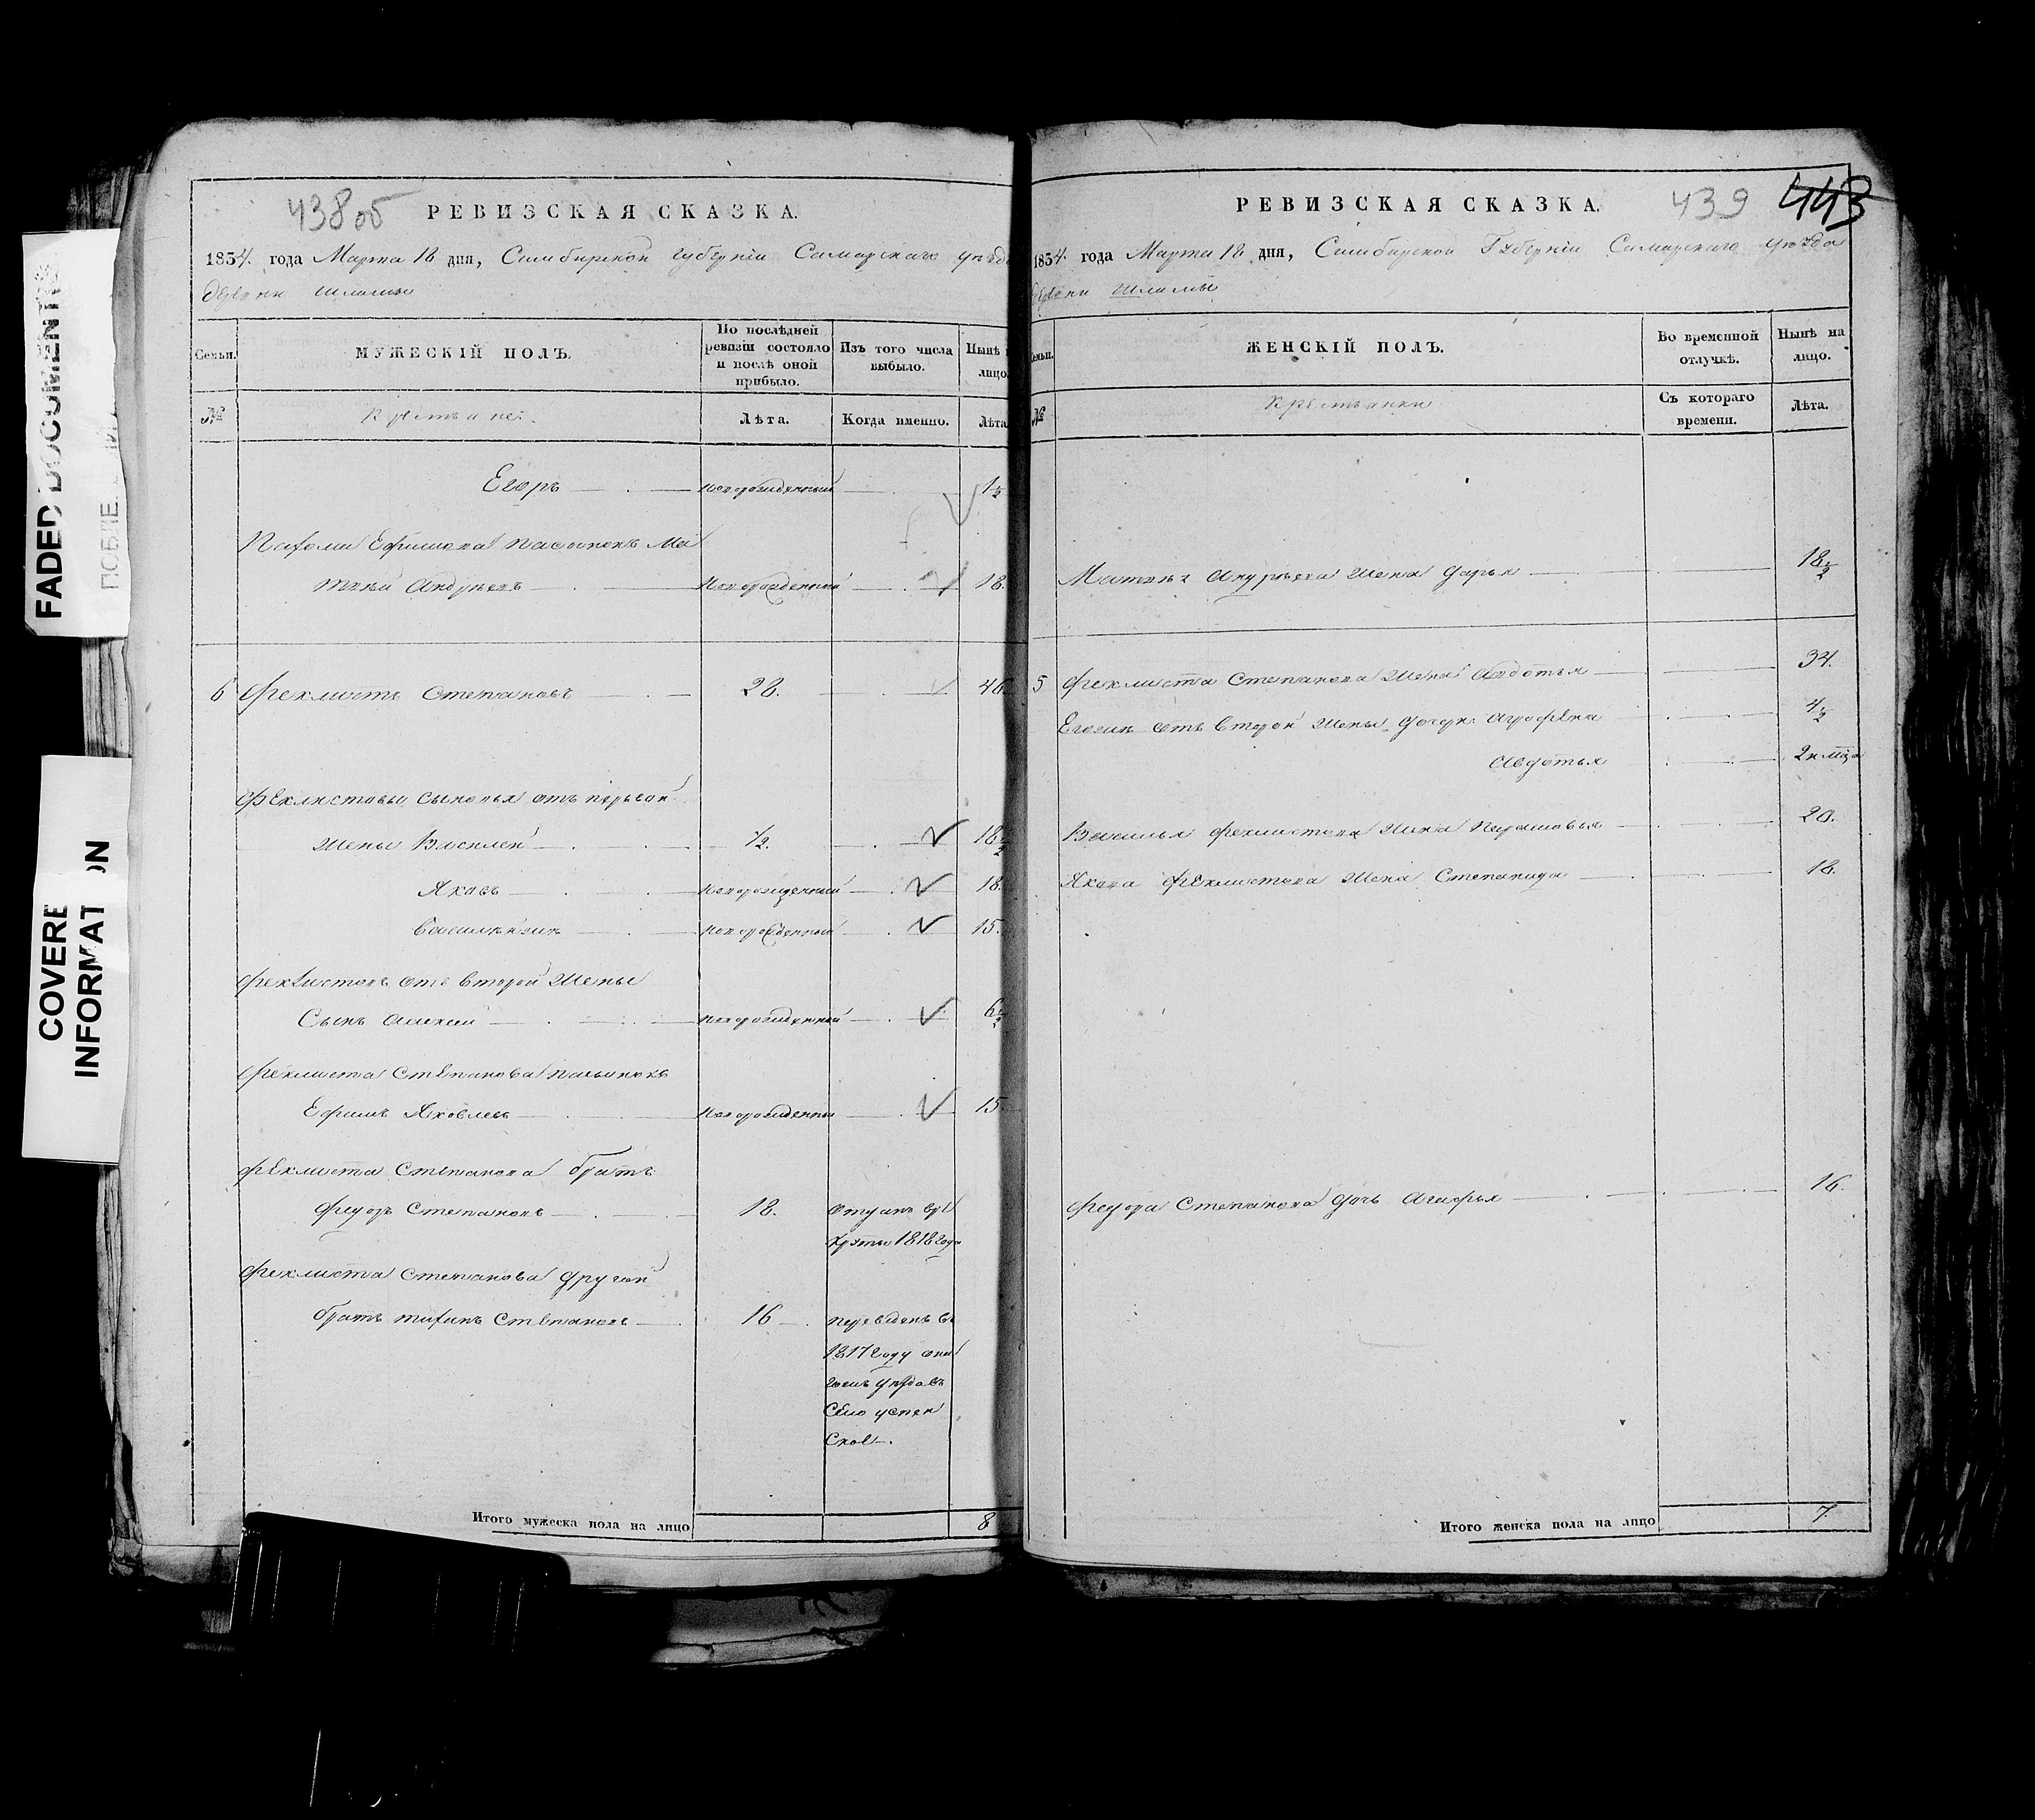 FADED DOCUMENT
ПОБЛЕ
COVERE
INFORMAT
ON
438 об
РЕВИЗСКАЯ СКАЗКА.
1834. года Марта 18 дня, Симбирской губерніи Самарскаго уѣзда
деревни Шламы
Семьи.
МУЖЕСКІЙ ПОЛЪ.
По послѣдней ревизіи состояло и послѣ оной прибыло.
Изъ того числа выбыло.
Нынѣ лицо
№
Крестьяне.
Лѣта.
Когда именно.
Лѣта
Егоръ новорожденный 1½
Пахома Ефимова пасынокъ Ма
твей Андреевъ Новорожденный 18.
6 Феклистъ Степановъ 28. 46
Феклистовы сыновья отъ первой
жены Василей ½. 18½
Яковъ новорожденный 18.
новорожденный 15.
Феклистовъ отъ второй жены
Сынъ Алексей новорожденный 6½
Феклиста Степанова пасынокъ
Ефимъ Яковлевъ новорожденны 15
Феклиста Степанова братъ
Федоръ Степановъ 18. Отданъ въ ре
круты 1818 года
Феклиста Степанова другой
братъ тихонъ Степановъ 16 переведенъ въ
1817 году
уѣзда въ
Село успен
Ское.
Итого мужеска пола на лицо 8
439 443
РЕВИЗСКАЯ СКАЗКА.
1834. года Марта 18 дня, Симбирской Губерніи Самарскаго уѣзда
деревни Шламы
Семьи.
ЖЕНСКІЙ ПОЛЪ.
Во временной отлучкѣ.
Нынѣ на лицо.
№
Крестьянки
Съ котораго времени.
Лѣта.
Матвея Андреева жена Дарья 18½
5 Феклиста Степанова жена Авдотья 34.
Егожъ отъ второй жены дочери Агрофена 4½
Авдотья 2 н мѣца
Василья Феклистова жена Парасковья 20.
Якова Феклистова жена Степанида 18.
Федора Степанова дочь Агафья 16.
Итого женска пола на лицо 7.